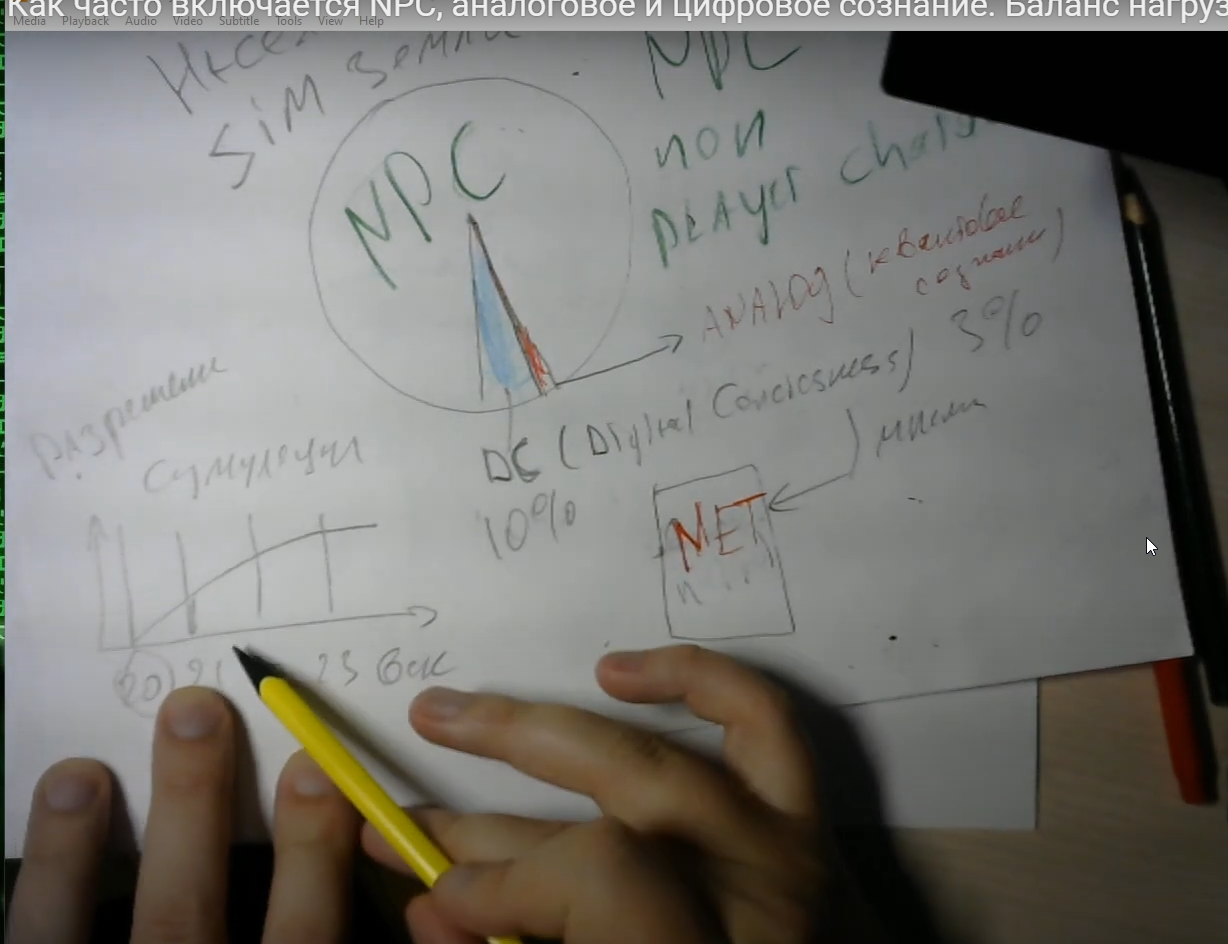 Как часто включается NPC, аналоговое и цифровое сознание. Баланс нагруз
Media Playback Audio Video Subtitle Tools View Help
SiM Земли
NPC
NPC
non
player
ANALOG (квантовое
сознание)
3%
DC (Digital Conciosness)
10%
Разрешение
Симуляции
мысли
МЕТ
20 21 23 Век